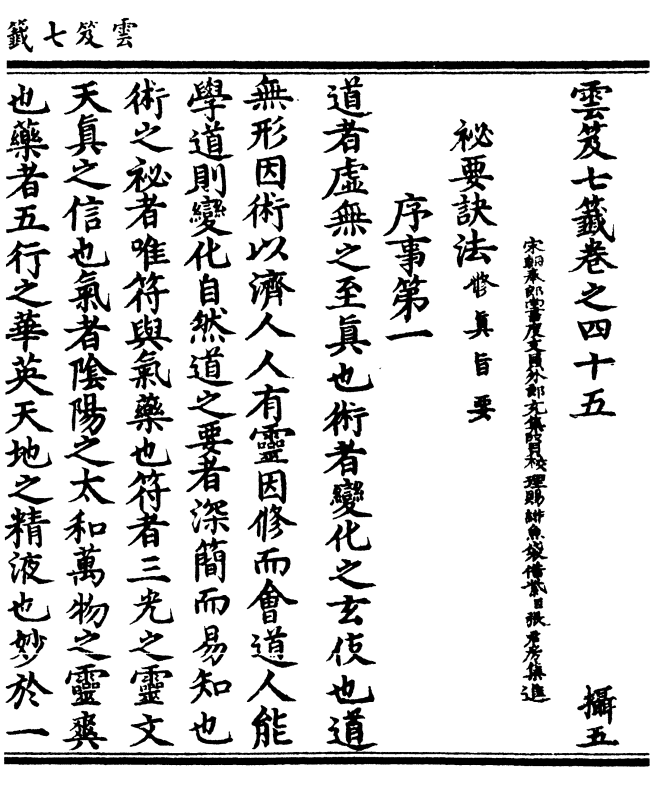 雲笈七籤
雲笈七籤卷之四十五 攝五
宋朝奉郎尚書度支員外郎充集賢校理賜緋魚袋借紫臣張君房集進
祕要訣法 修真旨要
序事第一
道者虛無之至真也術者變化之玄伎也道
無形因術以濟人人有靈因修而會道人能
學道則變化自然道之要者深簡而易知也
術之祕者唯符與氣藥也符者三光之靈文
天眞之信也氣者陰陽之太和萬物之靈爽
也藥者五行之華英天地之精液也妙於一